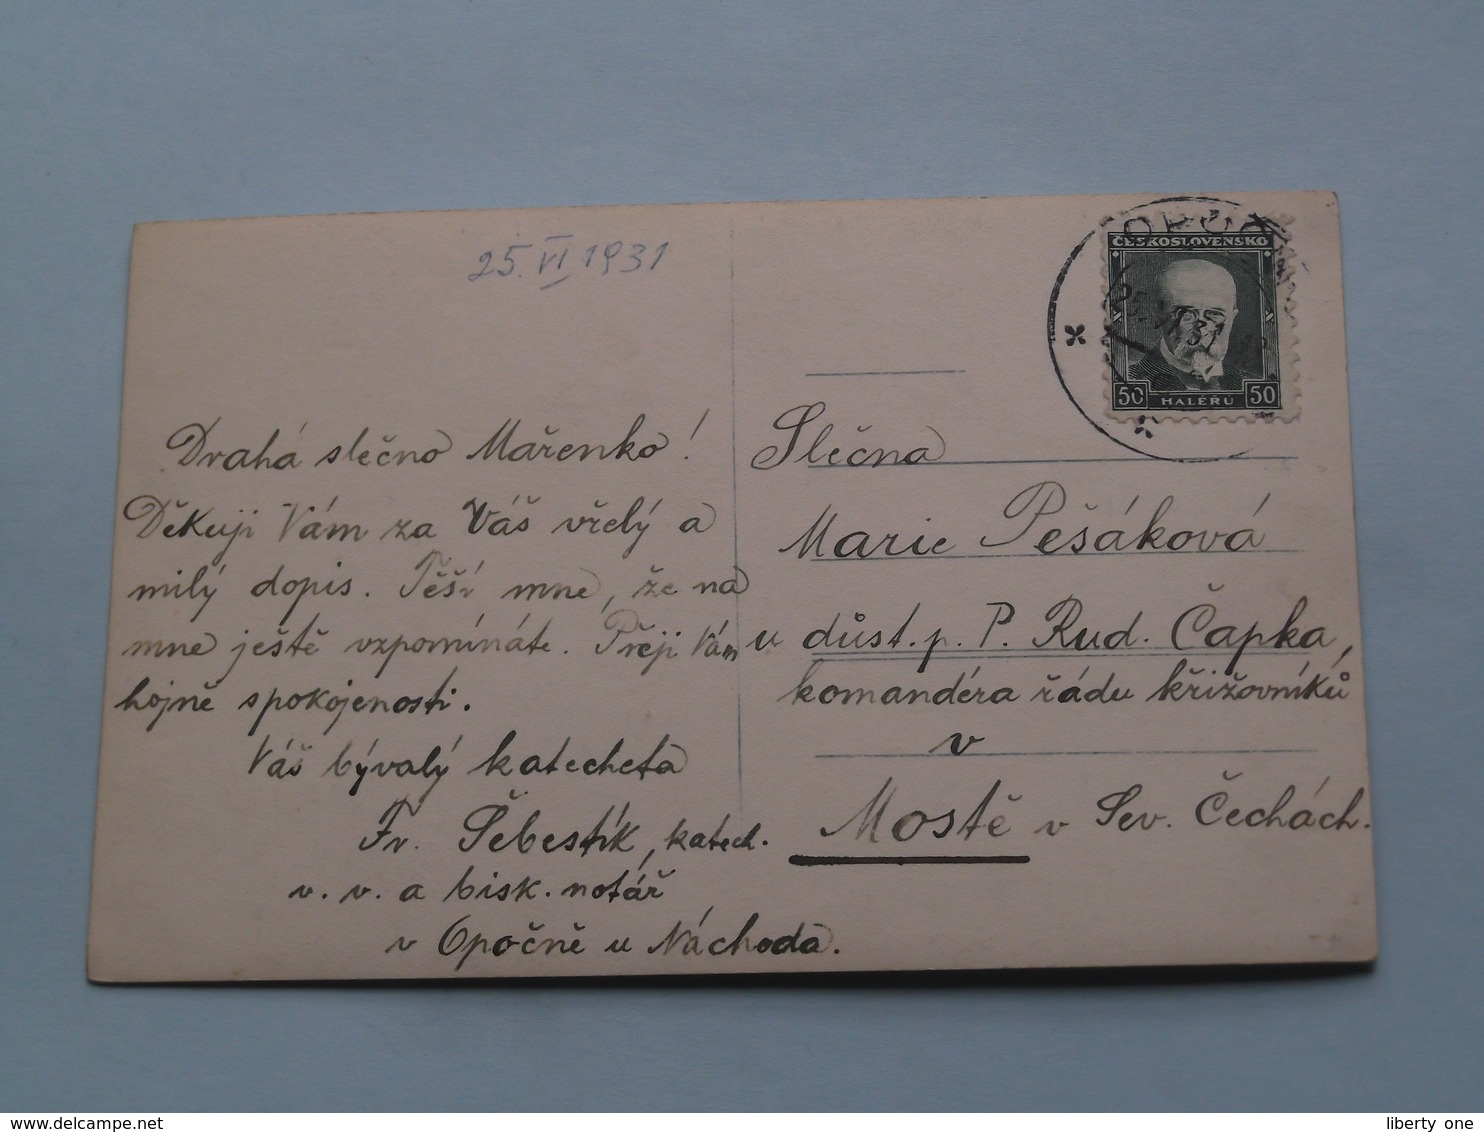 25. VI 1931
Drahá slečno Mařenko!
Děkuji Vám za Váš vřelý a
milý dopis. Těší mne, že na
mne ještě vzpomínáte. Přeji Vám
hojně spokojenosti.
Váš bývalý katecheta
Fr. Šebestík, katech.
v. v. a bisk. notář
v Opočně u Náchoda.
ČESKOSLOVENSKO
50 HALÉŘŮ 50
25.VI.31
Slečna
Marie Pešáková
u důst. p. P. Rud. Čapka,
komandéra řádu křižovníků
v
Mostě v Sev. Čechách.
delcampe.net
liberty one